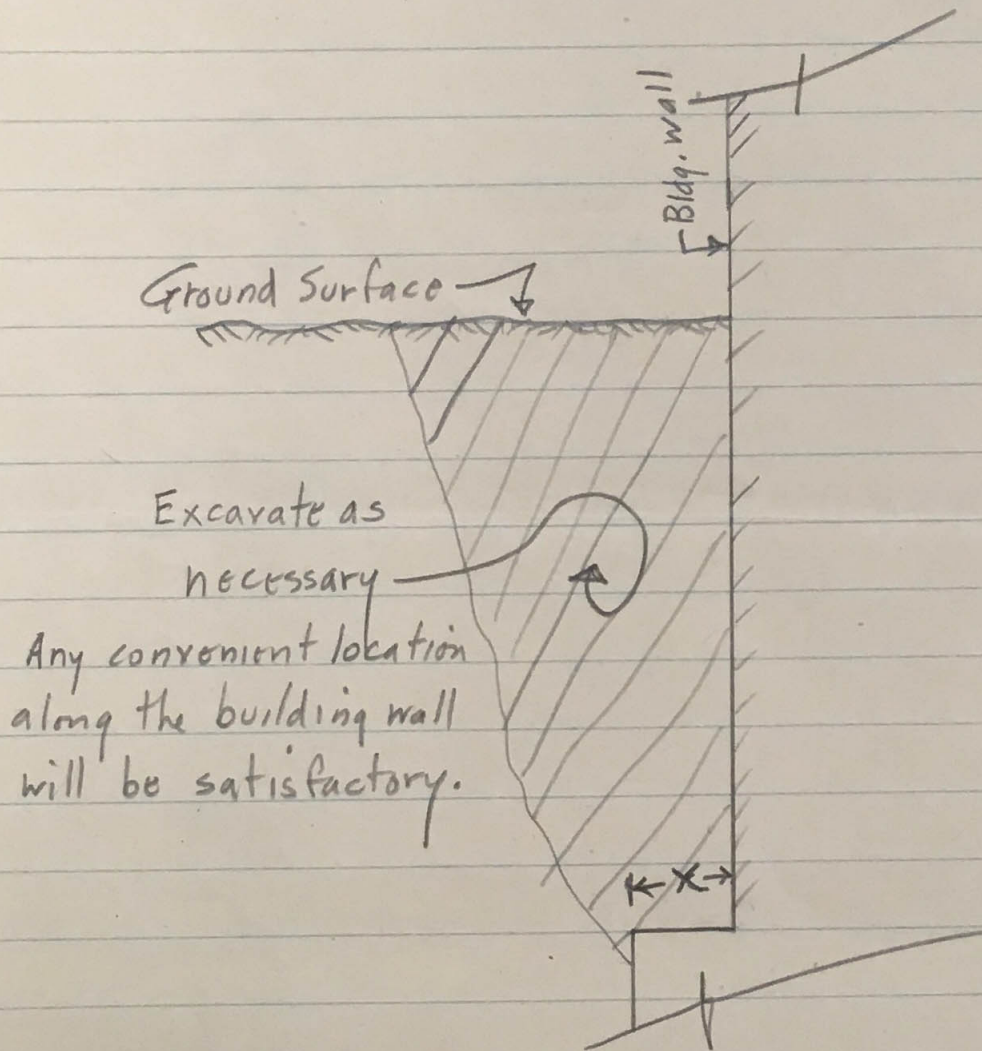 Bldg. wall
Ground Surface
Excavate as
necessary
Any convenient location
along the building wall
will be satisfactory.
x